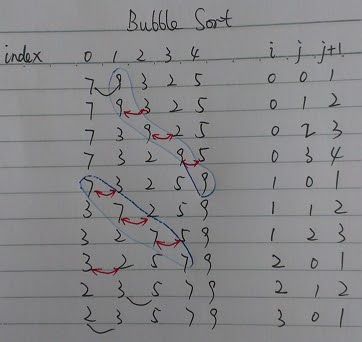 Bubble Sort
index 0 1 2 3 4 i j j+1
7 9 3 2 5 0 0 1
7 9 3 2 5 0 1 2
7 3 9 2 5 0 2 3
7 3 2 9 5 0 3 4
7 3 2 5 9 1 0 1
3 7 2 5 9 1 1 2
3 2 7 5 9 1 2 3
3 2 5 7 9 2 0 1
2 3 5 7 9 2 1 2
2 3 5 7 9 3 0 1